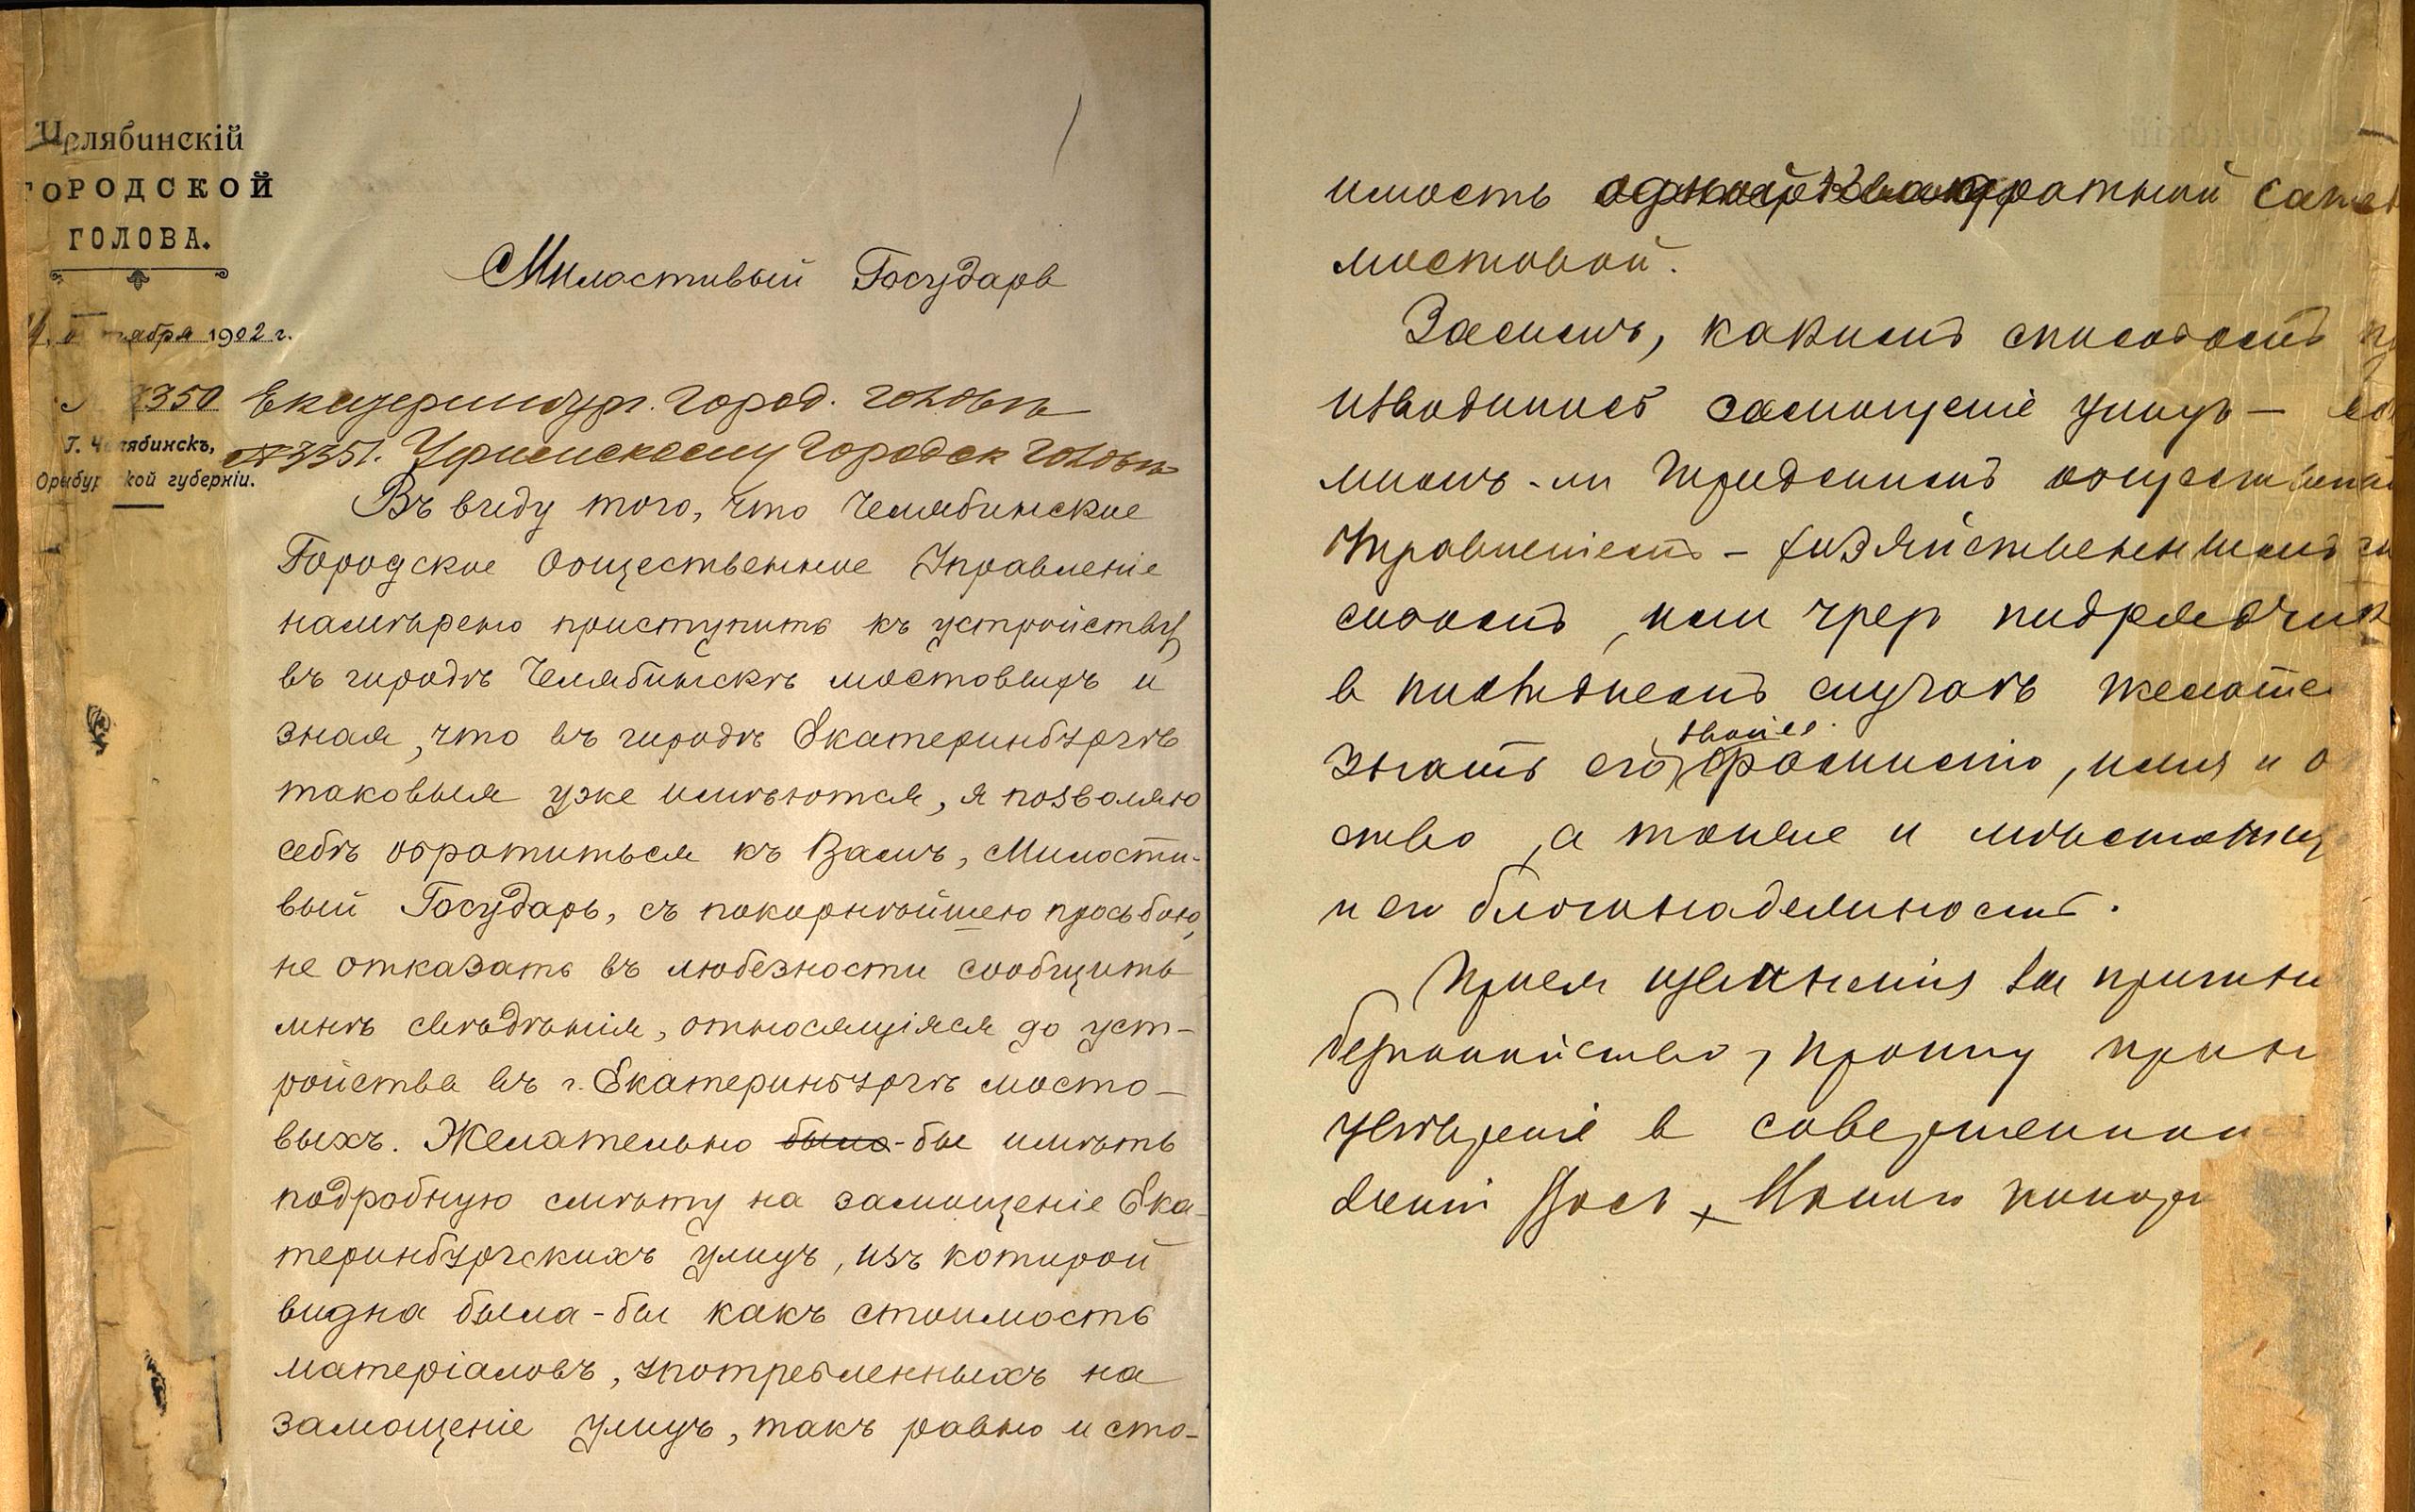 Челябинскій
ГОРОДСКОЙ
ГОЛОВА.
Милостивый Государь
тября 1902 г.
350 Екатеринбург. Город. головѣ
Г. Челябинскъ,
№ 3351. Уфимскому Городск головѣ
Оренбургской губерніи.
Въ виду того, что Челябинское
Городское Общественное Управленіе
намѣрено приступить къ устройству
въ городѣ Челябинскѣ мостовыхъ и
зная, что въ городѣ Екатеринбургѣ
таковыя уже имѣются, я позволяю
себѣ обратиться къ Вамъ, Милости-
вый Государь, съ покорнѣйшею просьбою,
не отказать въ любезности сообщить
мнѣ свѣдѣнія, относящіяся до уст-
ройства въ г. Екатеринбургѣ мосто-
выхъ. Желательно было-бы имѣть
подробную смѣту на замощеніе Ека-
теринбургскихъ улицъ, изъ которой
видна была-бы какъ стоимость
матеріаловъ, употребленныхъ на
замощеніе улицъ, такъ равно и сто-
имость одной квадратной саже
мостовой.
Засимъ, какимъ способомъ пр
изводилось замощеніе улицъ —
ли Городскимъ общественны
Управленіемъ — хозяйственнымъ сп
собомъ, или чрез подрядчик
в послѣднемъ случаѣ желате
знать его фамилію, имя и о
ство, а также и мѣстожит
и его благонадежность.
Прося извиненія за причин
безпокойство, прошу прин
увѣреніе в совершенном